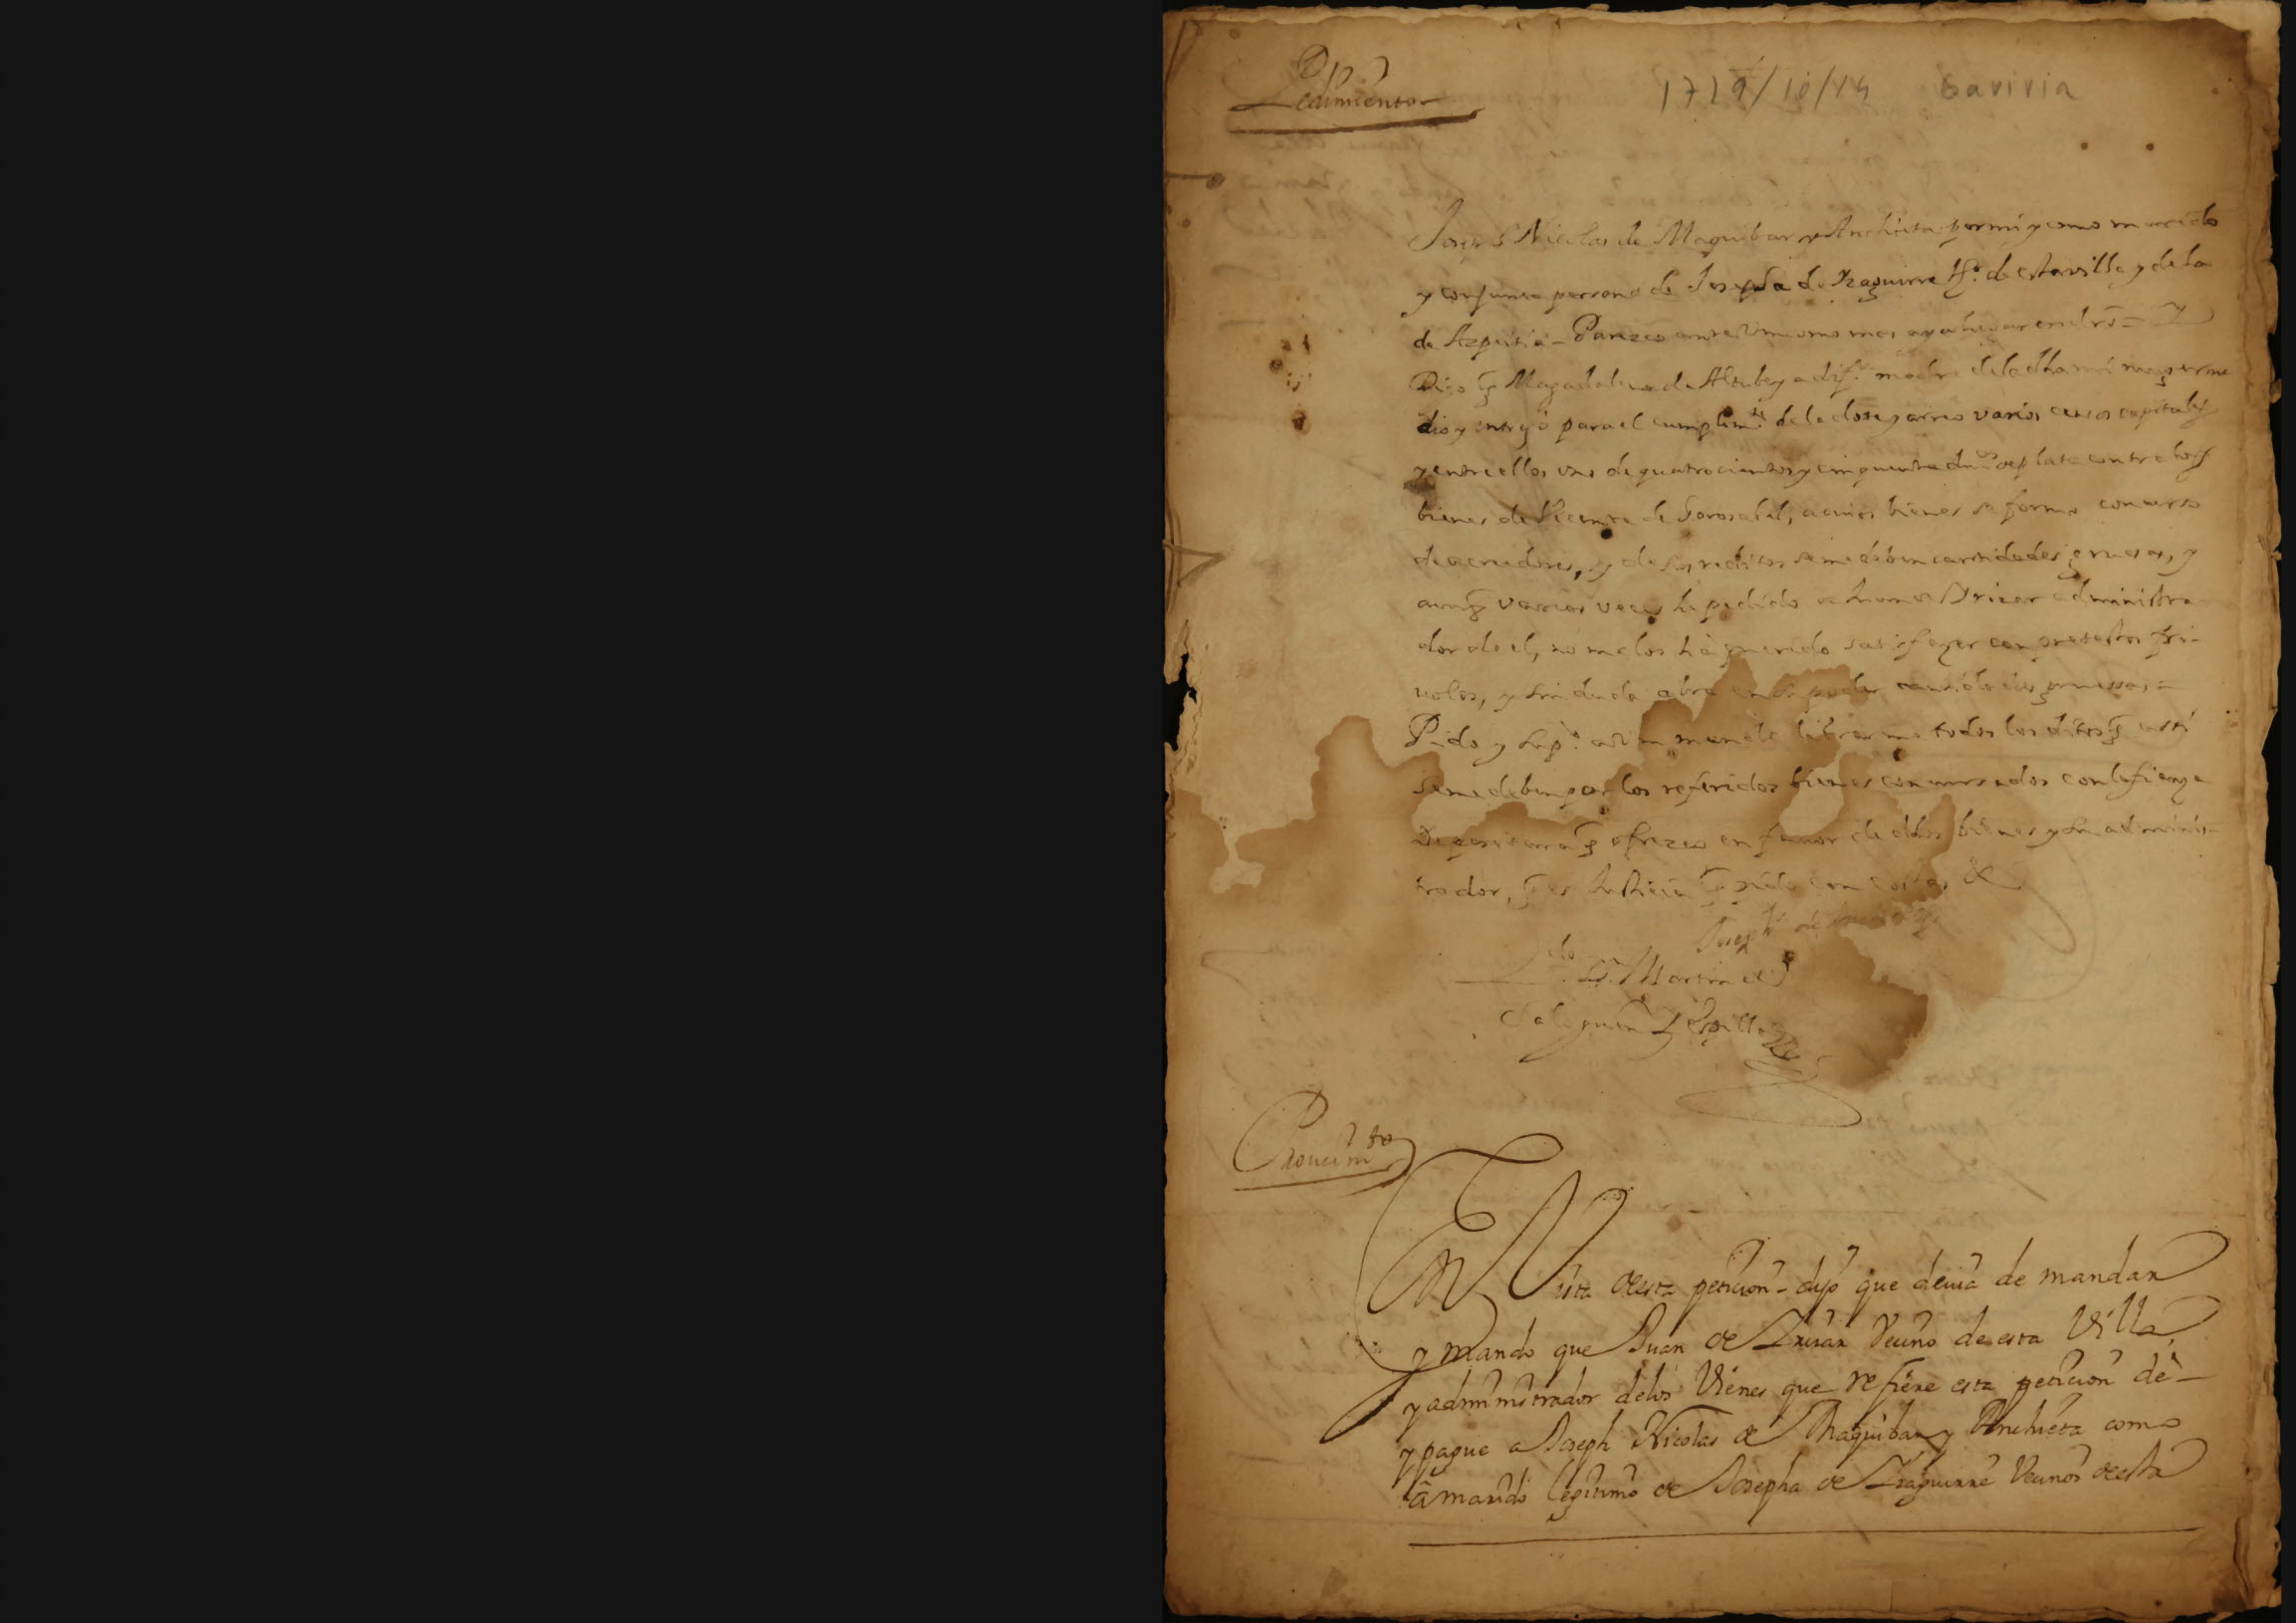 Pedimiento
1729/10/14 Saviria
Joseph Nicolas de Maguibar y Anchieta por mi y como marido
y conjunta persona de Josepha de Yzaguirre Vs. de esta villa y de la
de Azpeitia - Parezco ante Vm como mas aya lugar en dro = Y
Digo q Magadalena de Altube y adif. madre de la dha mi muger me
dio y entregó para el cumplimto. de la dote y arreo varios censos capitales
y entre ellos uno de quatrocientos y cinquenta dus de plata contra los
bienes de Vicente de Sorasabal, a cuios bienes se formo concurso
de acreedores, y de sus reditos se me deben cantidades gruesas, y
aunq varias veces he pedido a Juan de Yrizar administra
dor de el, no me los há querido satisfazer con pretextos fri-
volos, y sin duda abra en su poder cantidades gruessas =
Pido y supco. a Vm mande librarme todos los ditos q assi
se me deben por los referidos bienes concursados con la fianza
Depositaria q ofrezco en favor de dhos bienes y su adminis-
trador, q es Justicia q pido con costas &
Joseph Ns. de
Ldo. Dn. Martin de
Saloguen y Espilla
Proueimto
En Vista de esta peticion - dijo que deuia de mandar
y mando que Juan de Yrizar Vecino de esta Villa,
y administrador de los Vienes que refiere esta peticion dè -
y pague a Joseph Nicolas de Maguibar y Anchieta como
â marido legitimo de Josepha de Yzaguirre Vecinos de esta